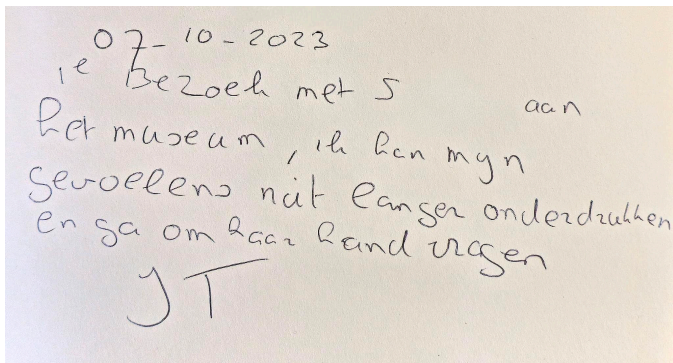 07-10-2023
1e Bezoek met S aan
het museum, ik kan mijn
gevoelens niet langer onderdrukken
en ga om haar hand vragen
JT